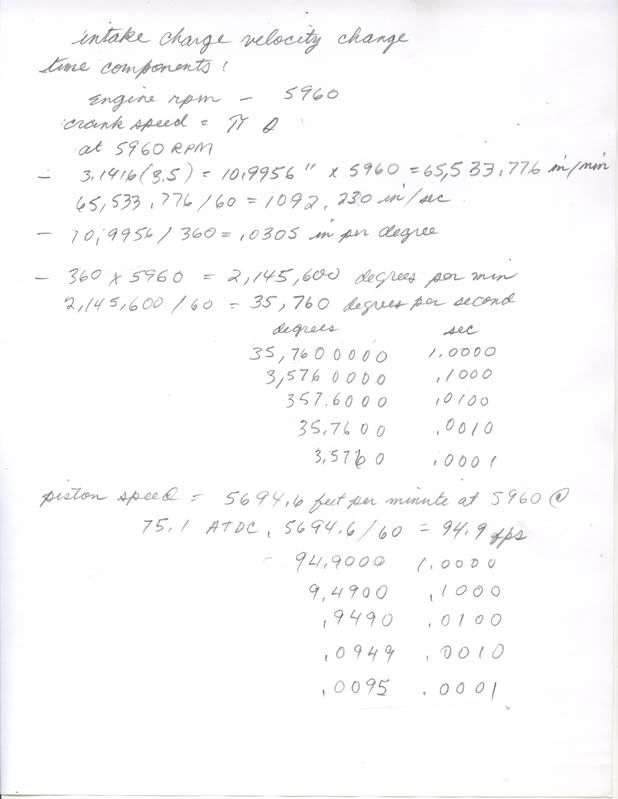 intake charge velocity change
time components:
engine rpm - 5960
crank speed = π θ
at 5960 RPM
- 3.1416(3.5) = 10.9956" x 5960 = 65,533.776 in/min
65,533.776/60 = 1092.230 in/sec.
- 10.9956/360 = .0305 in per degree
- 360 x 5960 = 2,145,600 degrees per min
2,145,600/60 = 35,760 degrees per second
degrees sec
35,760 0000 1.0000
3,576 0000 .1000
357.6000 .0100
35.7600 .0010
3.5760 .0001
piston speed = 5694.6 feet per minute at 5960 @
75.1 ATDC, 5694.6/60 = 94.9 fps
94.9000 1.0000
9.4900 .1000
.9490 .0100
.0949 .0010
.0095 .0001